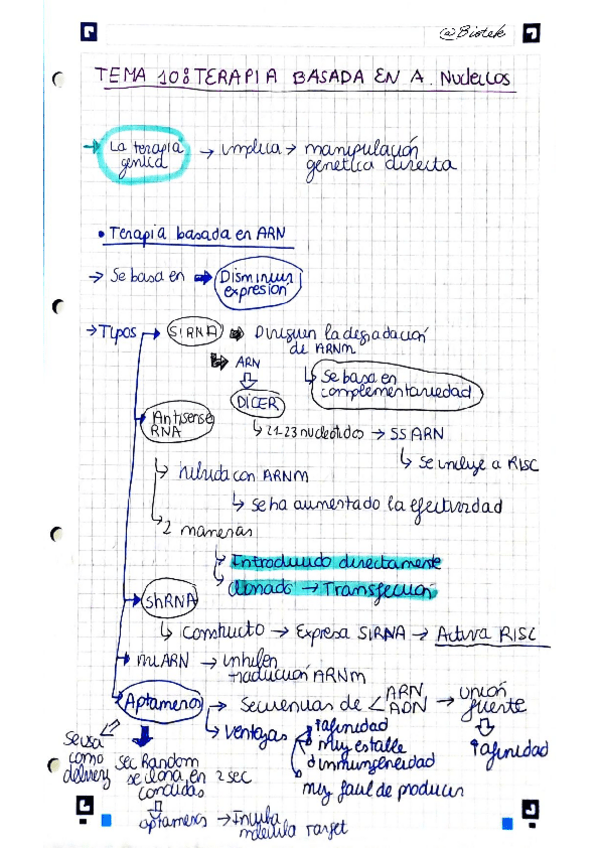 @Biotek
TEMA 10: TERAPIA BASADA EN A. Nucleicos
La terapia
génica
→ implica → manipulación
genetica directa
• Terapia basada en ARN
→ Se basa en ➡ Disminuir
expresión
→ Tipos → SiRNA ➡ Dirigen la degradación
de ARNm
➡ ARN
↳ Se basa en
complementariedad
DICER
Antisense
RNA
↳ 21-23 nucleótidos → SS ARN
↳ Se incluye a RISC
↳ hibrida con ARNm
↳ se ha aumentado la efectividad
↳ 2 maneras
↳ Introducido directamente
↳ clonado → Transfección
shRNA
↳ constructo → Expresa SiRNA → Activa RISC
miARN → inhiben
traducción ARNm
Aptameros → secuencias de < ARN
ADN → unión
fuerte
↳ Ventajas
↑afinidad
muy estable
inmunogeneidad
muy facil de producir
↑afinidad
Se usa
como
delivery
Sec Random
se clona en 2 sec
conocidas
aptameros → Incuba
molécula target